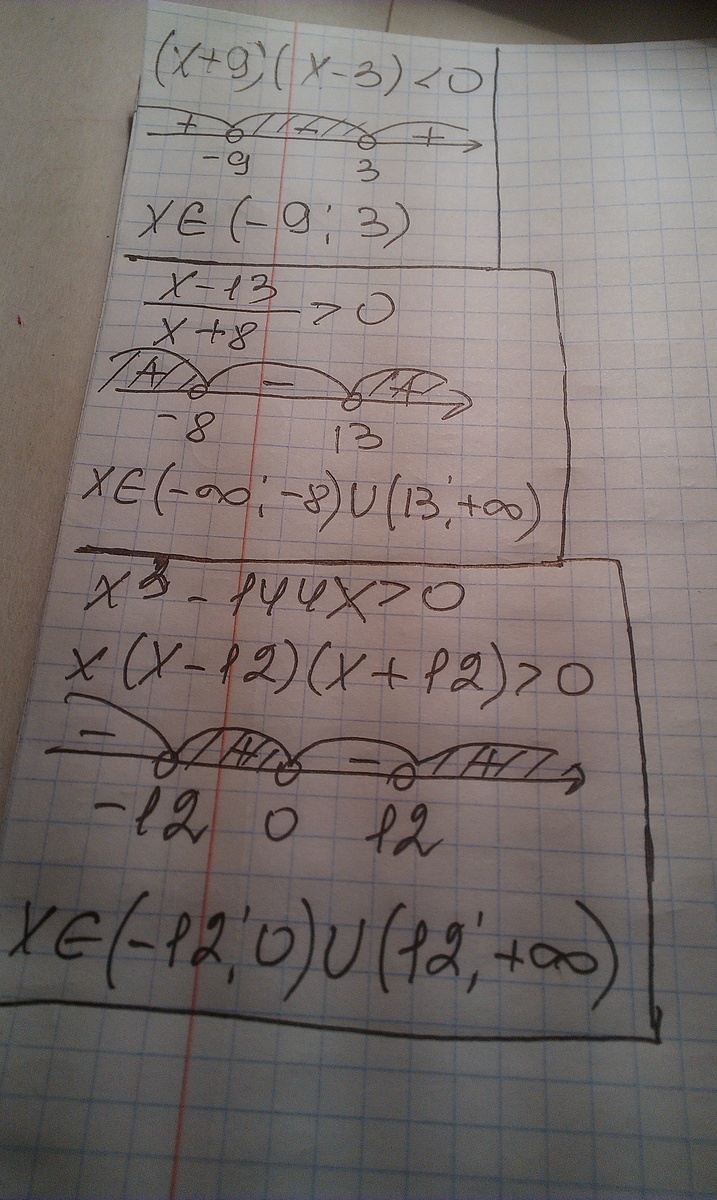 (x+9)(x-3)<0
+ - +
-9 3
x∈(-9; 3)
x-13
x+8 >0
+ - +
-8 13
x∈(-∞; -8)∪(13; +∞)
x³-144x>0
x(x-12)(x+12)>0
- + - +
-12 0 12
x∈(-12; 0)∪(12; +∞)